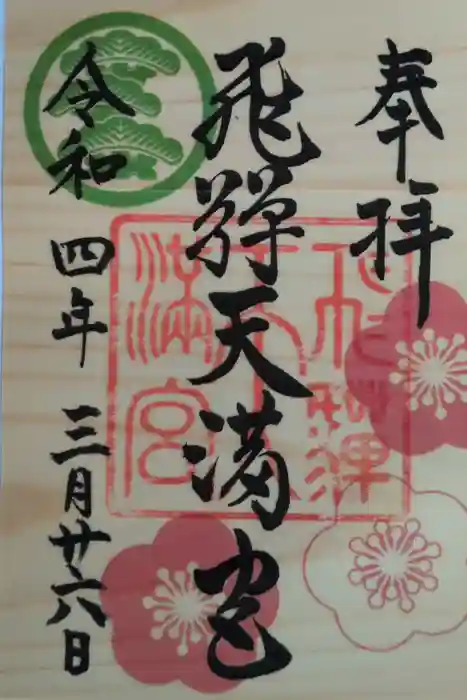 奉拝
飛騨天満宮
令和四年三月廿六日
飛騨天満宮